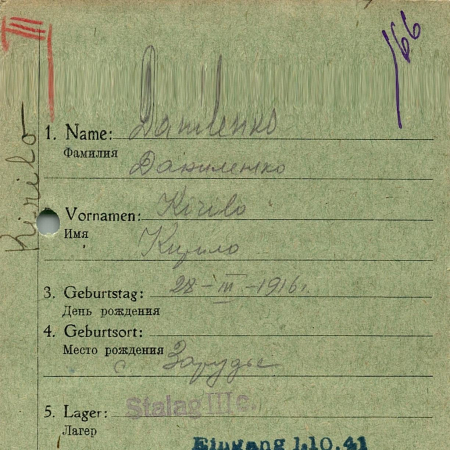 III
166
Kirilo
1. Name: Даниленко
Фамилия
Даниленко
2. Vornamen: Kirilo
Имя
Кирило
3. Geburtstag: 28-III-1916г.
День рождения
4. Geburtsort:
Место рождения с Зарудье
5. Lager: Stalag III c.
Лагер
Eingang 1.10.41